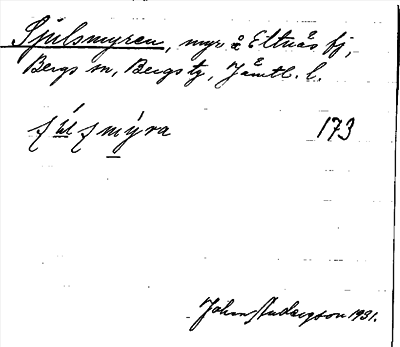 Sjulsmyren, myr å Ettnås fj,
Bergs sn, Bergs tg, Jämtl. l.
173
Johan Andersson 1931.